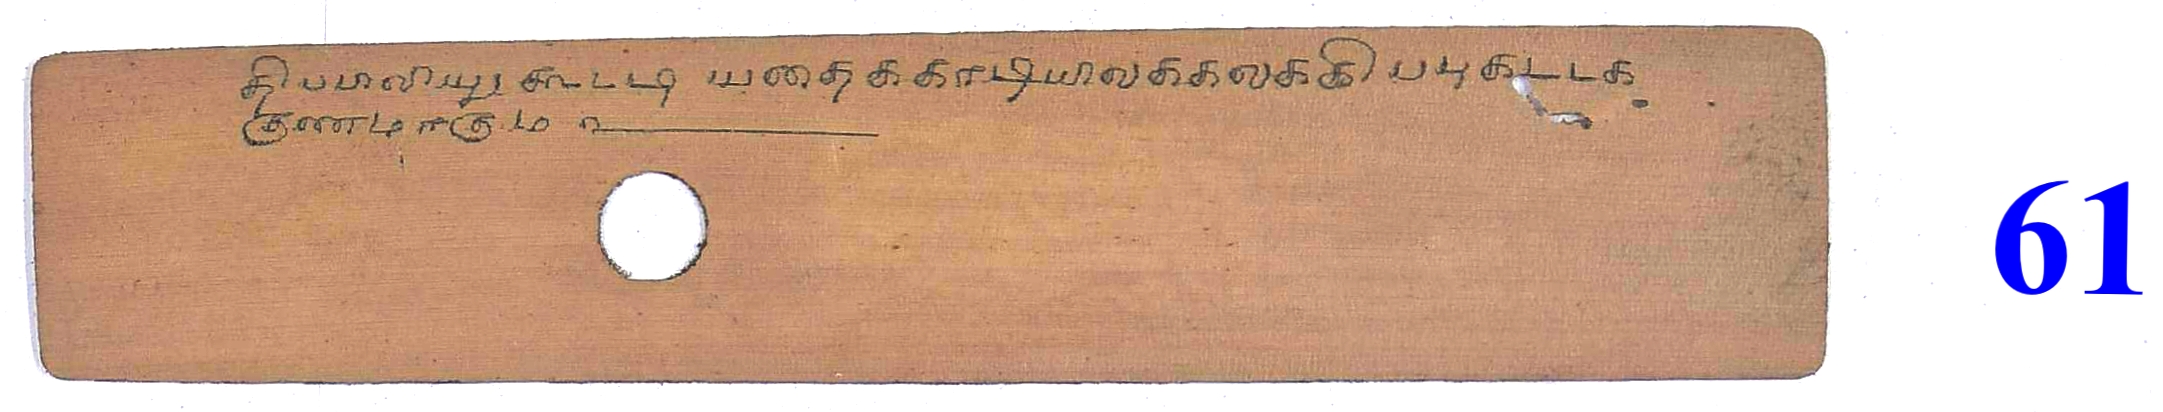 திபபலியுங கூடடி யதைக காடியாலக கலககி பபுகடடக
குணமாகும
61